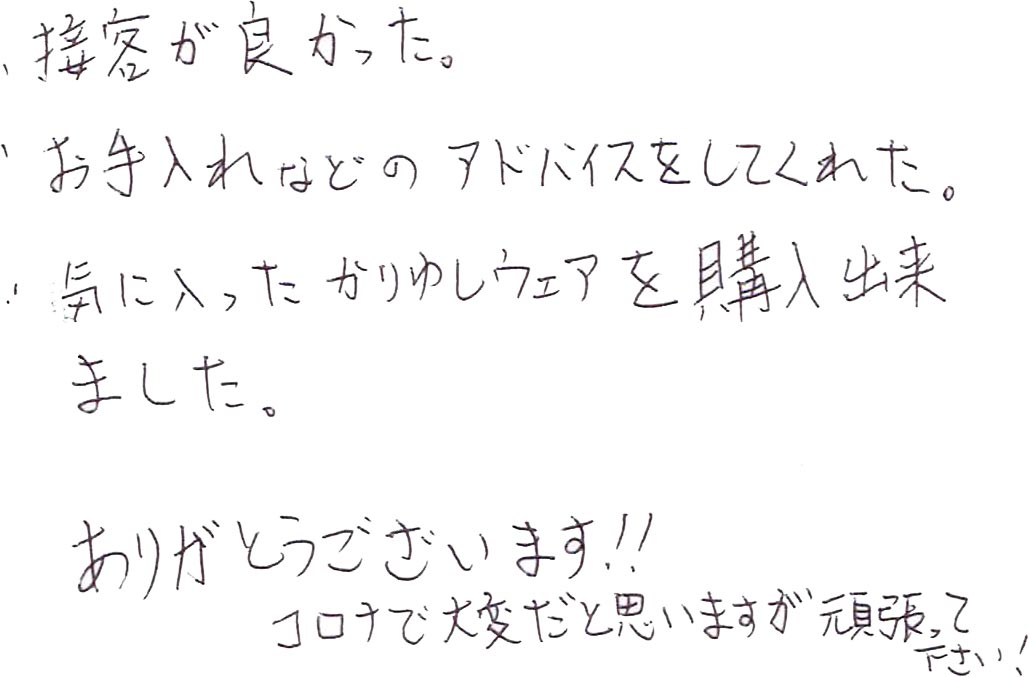 ・接客が良かった。
・お手入れなどのアドバイスをしてくれた。
・気に入ったかりゆしウェアを購入出来
ました。
ありがとうございます!!
コロナで大変だと思いますが頑張って
下さい!